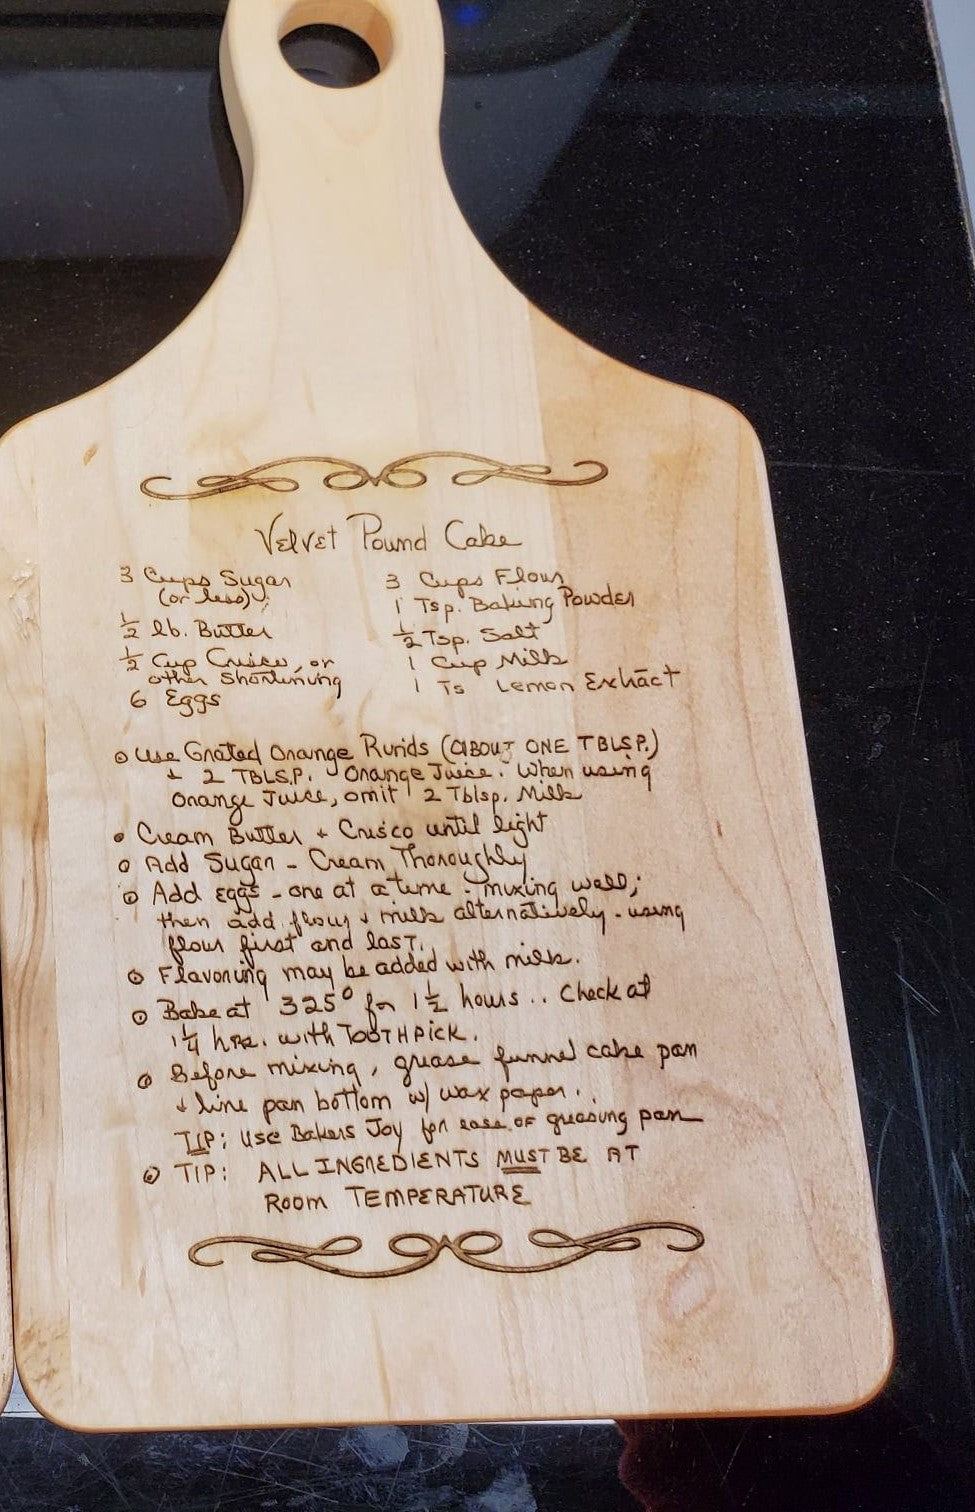 Velvet Pound Cake
3 Cups Sugar
(or less)
1/2 lb. Butter
1/2 Cup Crisco, or
other Shortening
6 Eggs
3 Cups Flour
1 Tsp. Baking Powder
1/2 Tsp. Salt
1 Cup Milk
1 Ts Lemon Extract
Use Grated Orange Rinds (ABOUT ONE TBLSP.)
+ 2 TBLSP. Orange Juice. When using
Orange Juice, omit 2 Tblsp. Milk
Cream Butter + Crisco until light
Add Sugar - Cream Thoroughly
Add eggs - one at a time - mixing well;
then add flour + milk alternatively - using
flour first and last.
Flavoring may be added with milk.
Bake at 325° for 1 1/2 hours .. Check at
1 1/4 hrs. with TOOTHPICK.
Before mixing, grease funnel cake pan
+ line pan bottom w/ wax paper..
TIP: Use Bakers Joy for ease of greasing pan
TIP: ALL INGREDIENTS MUST BE AT
ROOM TEMPERATURE